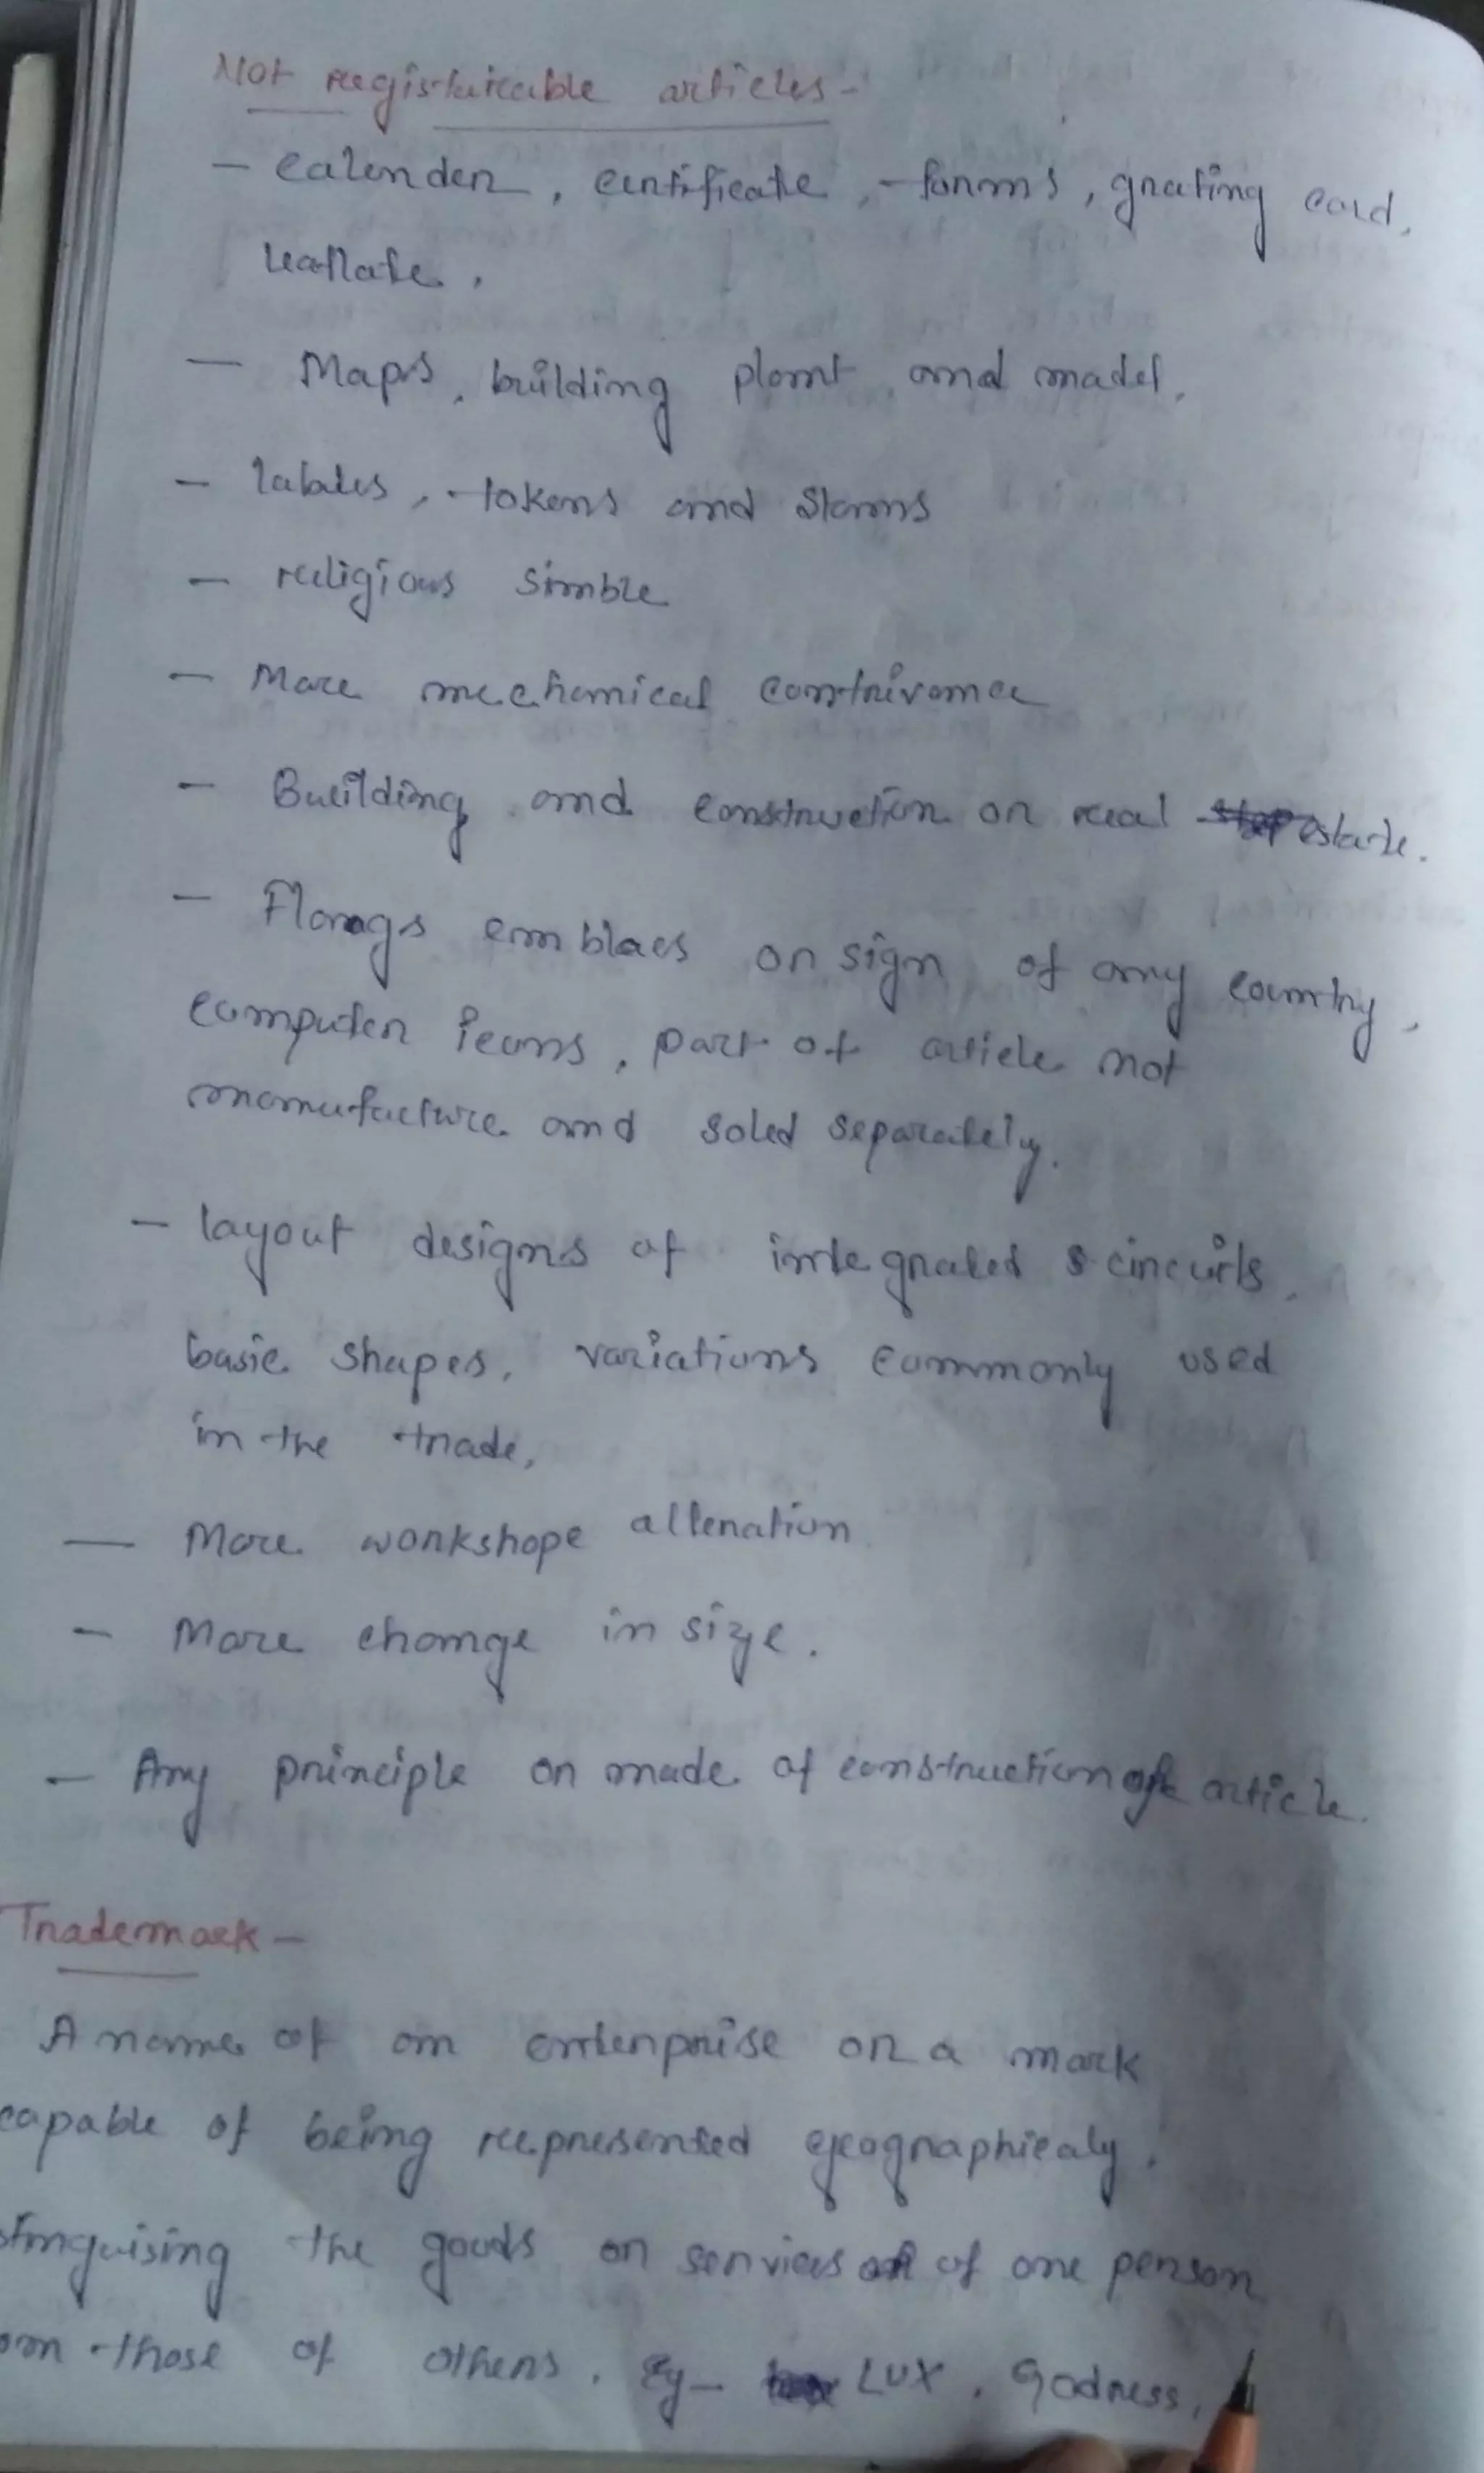 Not registareable articles -
- Calender, certificate, forms, grating card,
leaflate.
- Maps, building plant and model.
- lables, tokens and stams
- religious simble
- More mechanical contrivance
- Building and construction or real estate.
- Flangs emblaes or sign of any country,
computer icons, part of article not
manufacture and soled separately.
- layout designs of integrated circuits,
basic shapes, variations commonly used
in the trade,
- More workshope alteration
- More change in size.
- Any principle or mode of construction of article.
Trademark -
A name of an enterprise or a mark
capable of being represented geographicaly,
stinguising the goods or services of one person
om those of others. Eg - LUX, Godress,